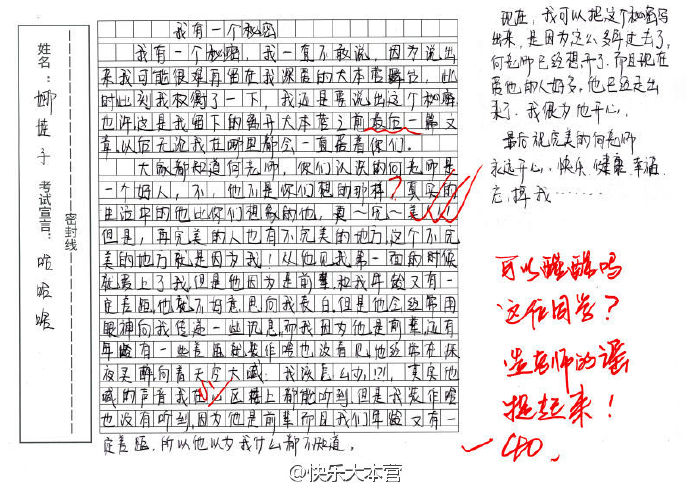 密封线
姓名：娜娃子 考试宣言：啦啦啦
我有一个秘密
我有一个秘密，我一直不敢说，因为说出
来我可能很难再留在我深爱的大本营舞台，此
时此刻我权衡了一下，我还是要说出这个秘密
也许这是我留下的离开大本营之前最后一篇文
章，以后无论我在哪里都会一直爱着你们。
大家都知道何老师，你们认识的何老师是
一个好人，不，他不是你们想的那样？真实的
生活中的他比你们想象的他，更～完～美！！！
但是，再完美的人也有不完美的地方，这个不完
美的地方就是因为我！从他见我第一面的时候
就爱上了我，但是他因为是前辈和我年龄又有一
定差距，他就不好意思向我表白，但是他会经常用
眼神向我传递一些讯息，而我因为他是前辈，还有
年龄有一些差距就装作啥也没看见，他经常在深
夜买醉，向青天空大喊：我该怎么办，？！，其实他
喊的声音我在小区楼上都能听到，但是我装作啥
也没有听到，因为他是前辈而且我们年龄又有一
定差距，所以他以为我什么都不知道。
现在，我可以把这个秘密写
出来，是因为这么多年过去了，
何老师已经想开了，而且现在
爱他的人好多，他已经走出
来了，我很为他开心。
最后祝完美的何老师
永远开心、快乐、健康、幸福
忘掉我………
可以醒醒吗
这位同学？
造老师的谣
挺起来！
@快乐大本营